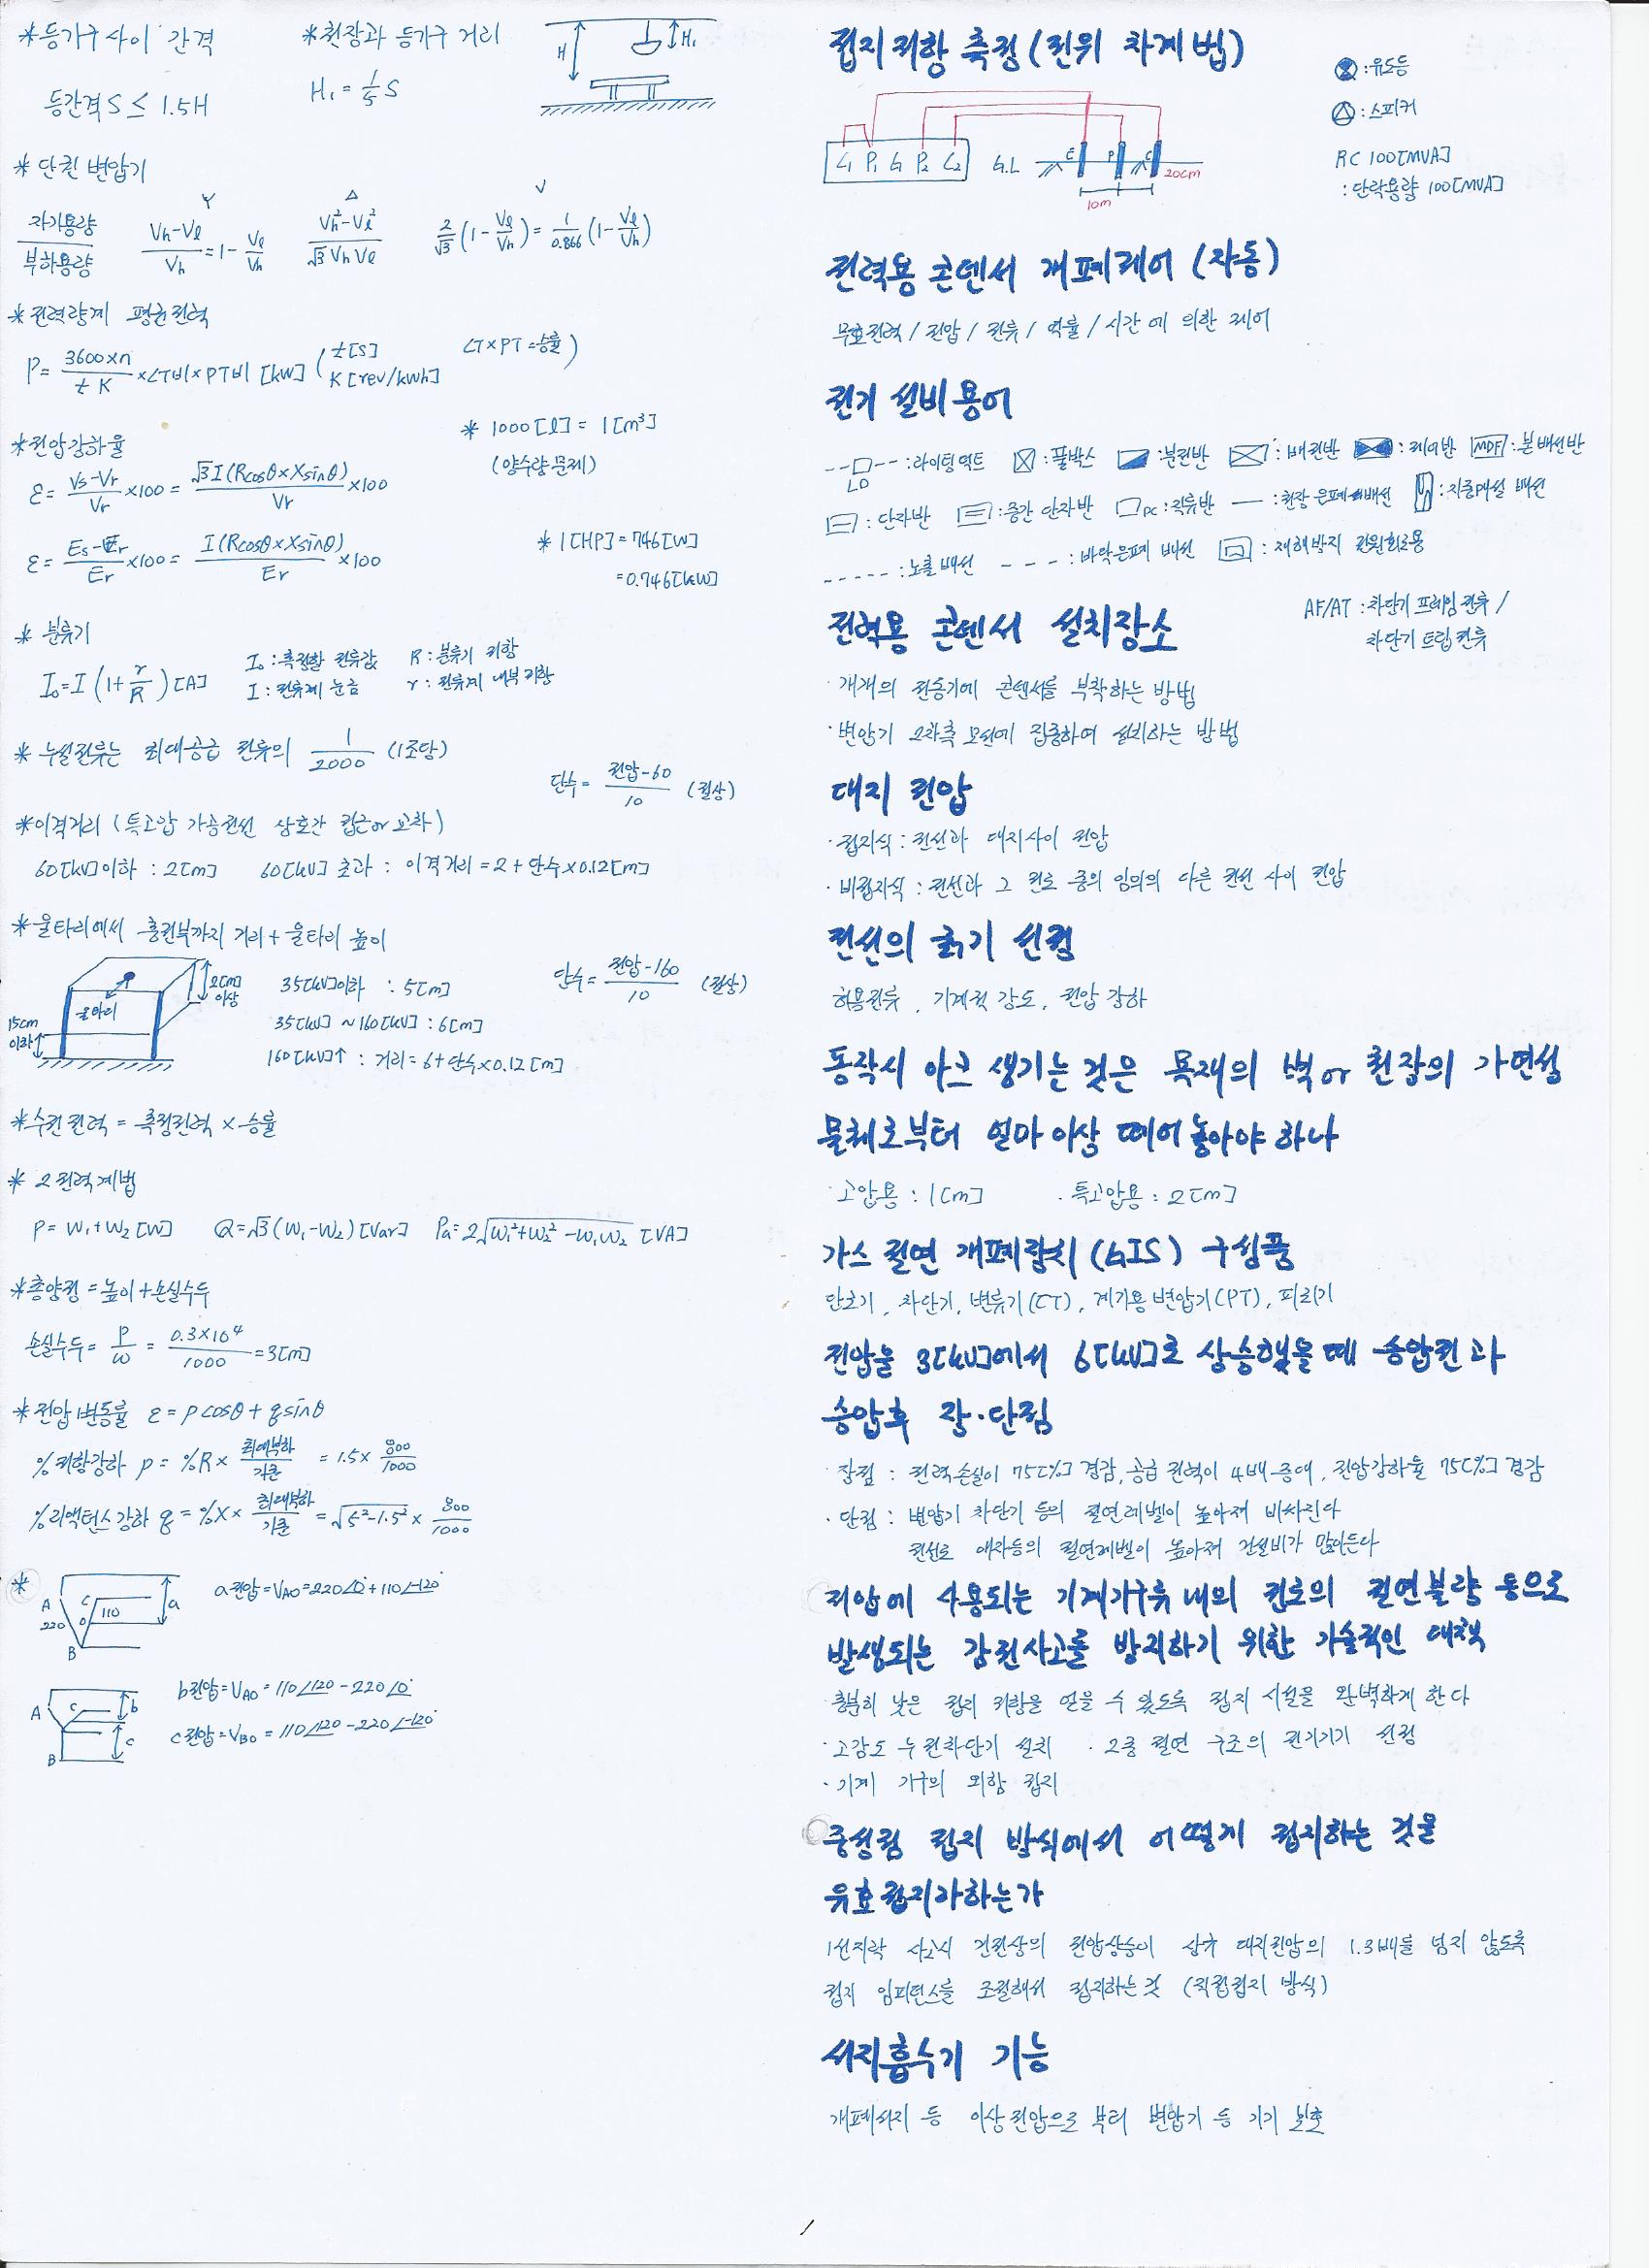 *등기구 사이 간격
등간격 S ≤ 1.5H
*천장과 등기구 거리
H₁ = 1/5 S
H
H₁
* 단권 변압기
자기용량/부하용량
Y
(Vh-Vℓ)/Vh = 1 - Vℓ/Vh
△
(Vh²-Vℓ²)/(√3 Vh Vℓ)
V
2/√3 (1 - Vℓ/Vh) = 1/0.866 (1 - Vℓ/Vh)
*전력량계 평균전력
P = (3600×n)/(t K) × CT비 × PT비 [kW] (t[s] K[rev/kWh] CT×PT=승률)
*전압강하율
ε = (Vs-Vr)/Vr ×100 = √3 I (Rcosθ×Xsinθ)/Vr ×100
ε = (Es-Er)/Er ×100 = I (Rcosθ×Xsinθ)/Er ×100
* 1000[ℓ] = 1[m³]
(양수량 문제)
* 1[HP] = 746[W]
= 0.746[kW]
* 분류기
I₀ = I (1 + r/R) [A]
I₀ : 측정할 전류값 R : 분류기 저항
I : 전류계 눈금 r : 전류계 내부저항
* 누설전류는 최대공급 전류의 1/2000 (1조당)
단수 = (전압-60)/10 (절상)
*이격거리 (특고압 가공전선 상호간 접근or교차)
60[kV]이하 : 2[m] 60[kV] 초과 : 이격거리 = 2 + 단수×0.12[m]
*울타리에서 충전부까지 거리 + 울타리 높이
울타리
2[m] 이상
15cm 이하
35[kV]이하 : 5[m]
35[kV] ~ 160[kV] : 6[m]
160[kV]↑ : 거리 = 6 + 단수×0.12[m]
단수 = (전압-160)/10 (절상)
*수전 전력 = 측정전력 × 승률
* 2전력계법
P = W₁+W₂ [W] Q = √3 (W₁-W₂) [Var] Pa = 2√(W₁²+W₂²-W₁W₂) [VA]
*총양정 = 높이+손실수두
손실수두 = P/ω = (0.3×10⁴)/1000 = 3[m]
*전압변동률 ε = p cosθ + q sinθ
%저항강하 p = %R × 최대부하/기준 = 1.5 × 800/1000
%리액턴스 강하 q = %X × 최대부하/기준 = √(5²-1.5²) × 800/1000
*
A
220
C
O
110
a
B
a전압 = VAO = 220∠0° + 110∠-120°
A
C
b
c
B
b전압 = VAO = 110∠120 - 220∠0°
c전압 = VBO = 110∠120 - 220∠-120°
접지저항 측정 (전위 차계법)
C₁ P₁ G P₂ C₂
G.L
E
P
C
20cm
10m
: 유도등
: 스피커
RC 100[MVA]
: 단락용량 100[MVA]
전력용 콘덴서 개폐제어 (자동)
무효전력 / 전압 / 전류 / 역률 / 시간 에 의한 제어
전기 설비용어
: 라이팅덕트 : 풀박스 : 분전반 : 배전반 : 제어반 MDF : 본 배선반
LD
: 단자반 : 중간 단자반 DC : 직류반 : 천장 은폐 배선 : 지중매설 배선
: 노출 배선 : 바닥은폐 배선 : 재해방지 전원회로용
AF/AT : 차단기 프레임 전류 /
차단기 트립 전류
전력용 콘덴서 설치장소
· 개개의 전동기에 콘덴서를 부착하는 방법
· 변압기 2차측 모선에 집중하여 설비하는 방법
대지 전압
· 접지식 : 전선과 대지사이 전압
· 비접지식 : 전선과 그 전로 중의 임의의 다른 전선 사이 전압
전선의 굵기 선정
허용전류, 기계적 강도, 전압 강하
동작시 아크 생기는 것은 목재의 벽or 천장의 가연성
물체로부터 얼마 이상 떼어 놓아야 하나
· 고압용 : 1[m] · 특고압용 : 2[m]
가스 절연 개폐장치 (GIS) 구성품
단로기, 차단기, 변류기(CT), 계기용변압기(PT), 피뢰기
전압을 3[kV]에서 6[kV]로 상승했을 때 승압전과
승압후 장·단점
· 장점 : 전력손실이 75[%] 경감, 공급 전력이 4배 증대, 전압강하율 75[%] 경감
· 단점 : 변압기 차단기 등의 절연레벨이 높아져 비싸진다
전선로 애자등의 절연레벨이 높아져 건설비가 많이든다
저압에 사용되는 기계기구류 내의 전로의 절연불량 등으로
발생되는 감전사고를 방지하기 위한 기술적인 대책
· 충분히 낮은 접지 저항을 얻을 수 있도록 접지 시설을 완벽하게 한다
· 고감도 누전차단기 설치 · 2중 절연 구조의 전기기기 선정
· 기계 기구의 외함 접지
중성점 접지 방식에서 어떻게 접지하는 것을
유효접지라하는가
1선지락 사고시 건전상의 전압상승이 상규 대지전압의 1.3배를 넘지 않도록
접지 임피던스를 조절해서 접지하는 것 (직접접지 방식)
서지흡수기 기능
개폐서지 등 이상전압으로 부터 변압기 등 기기 보호
1